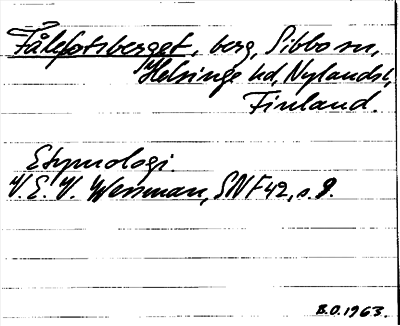 Fålefotsberget, berg, Sibbo sn,
Helsinge hd, Nylands l,
Finland.
Etymologi.
V. E. V. Wessman, SNF 42, s. 9.
B.O. 1963.